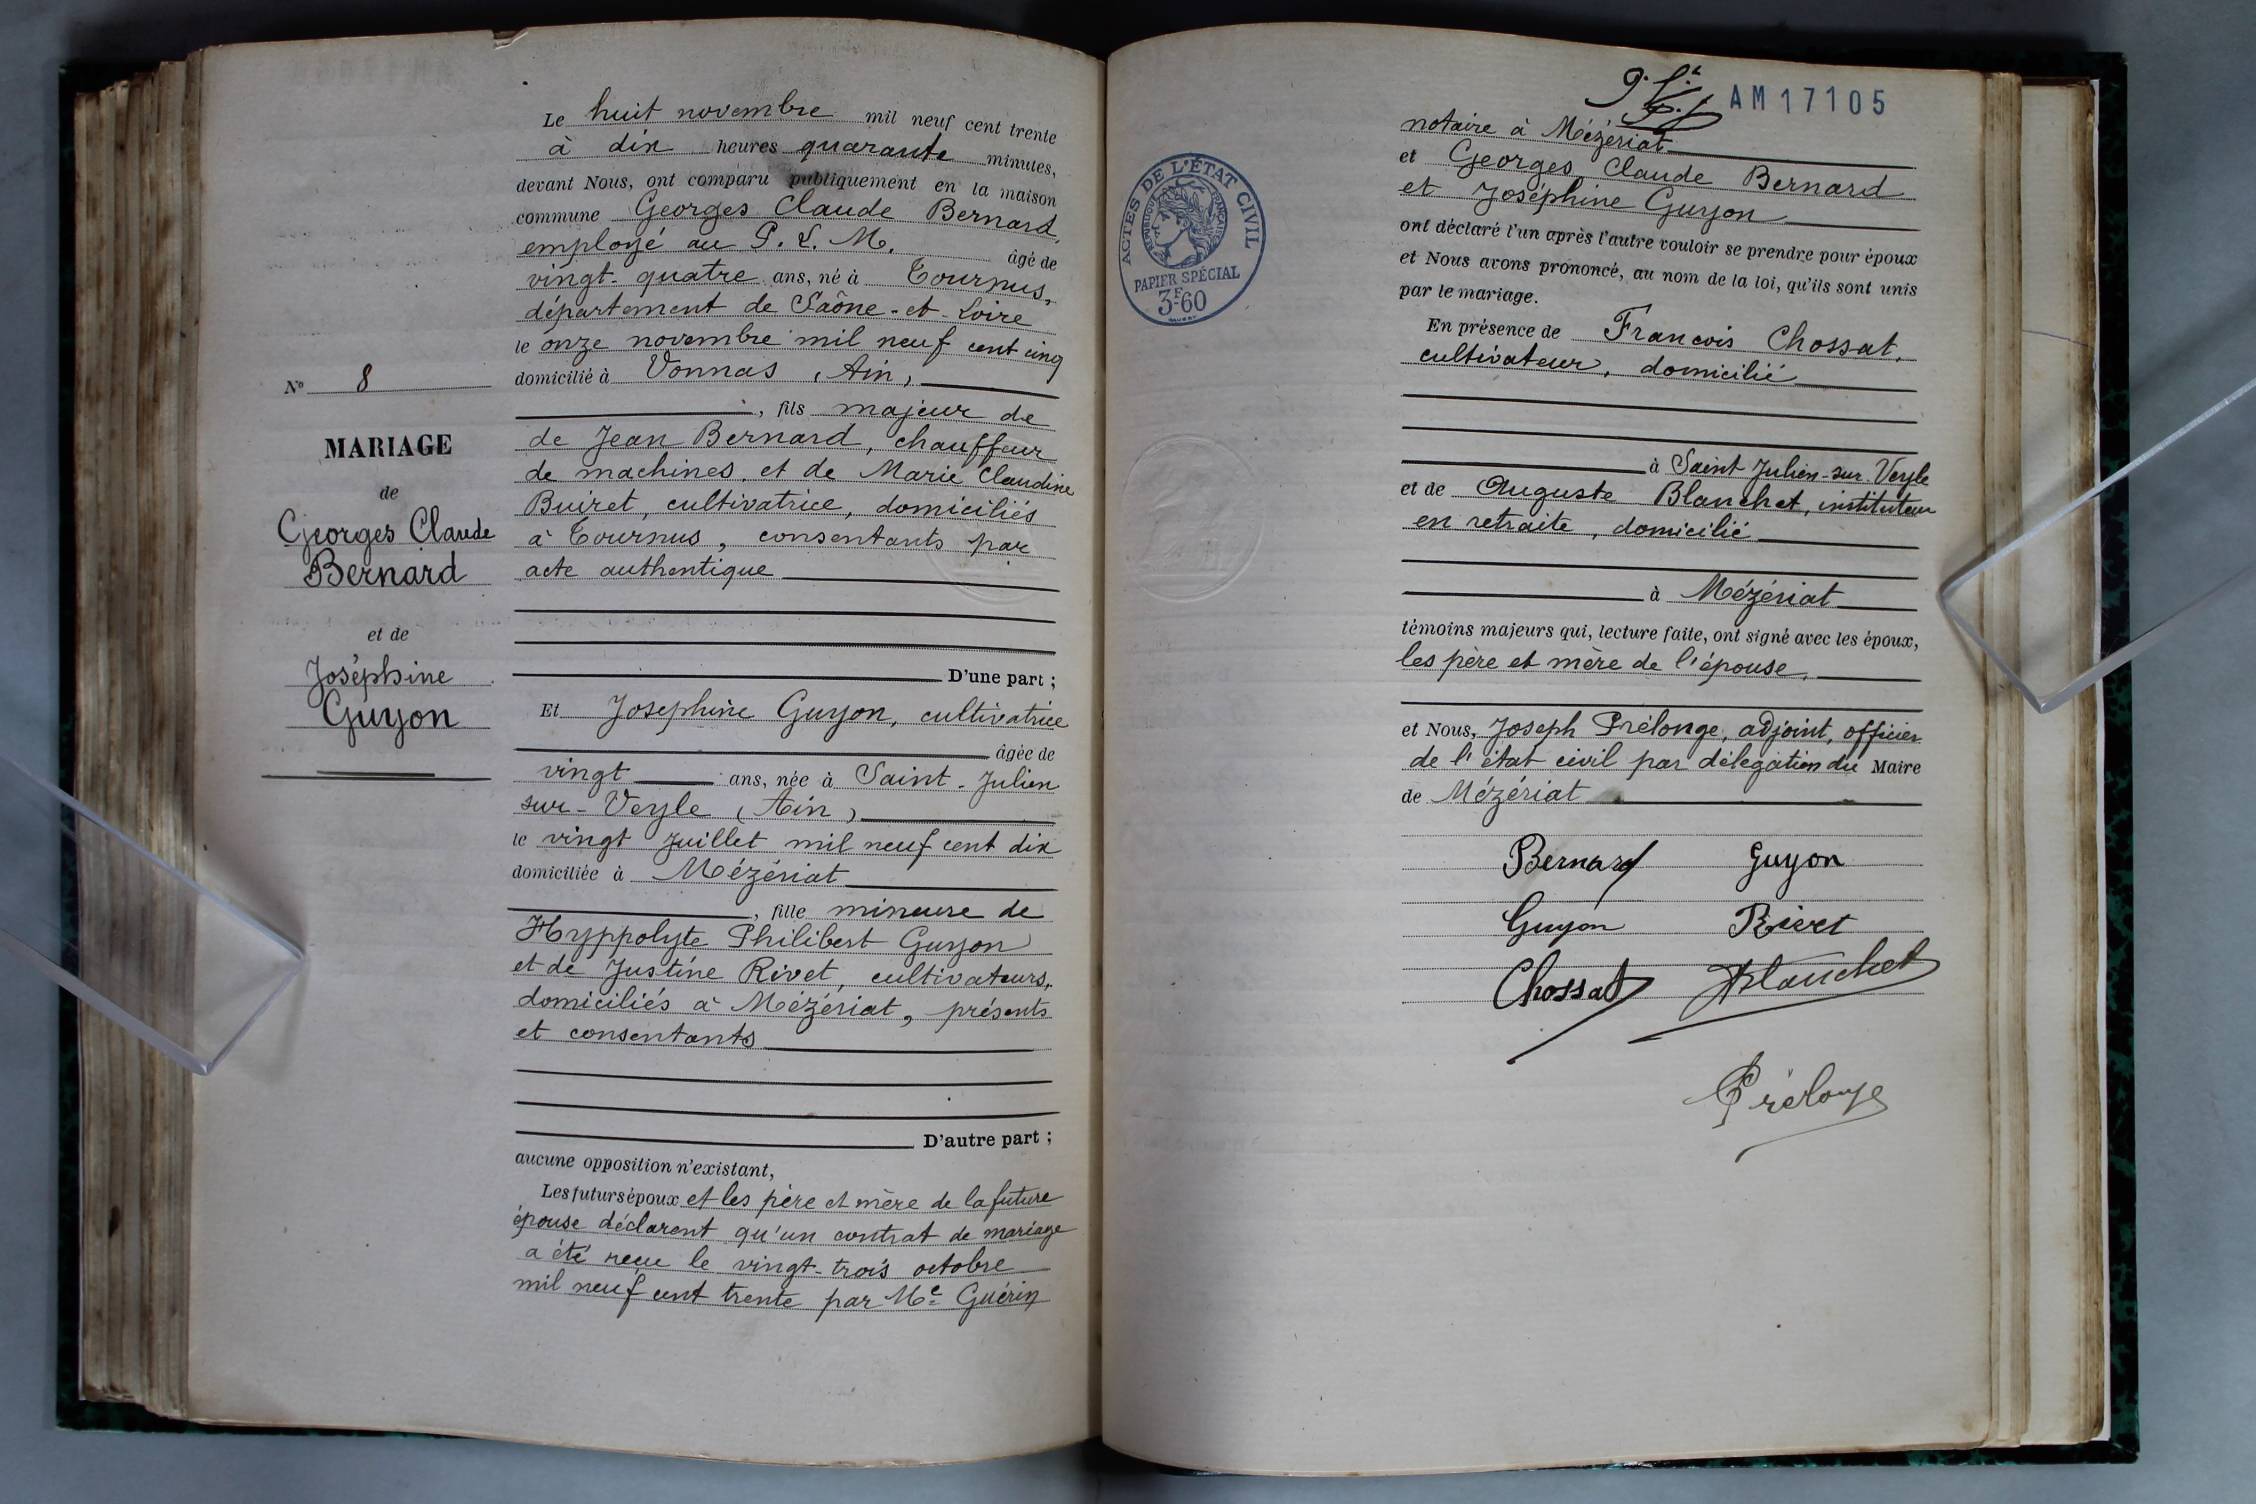 Le huit novembre mil neuf cent trente
à dix heures quarante minutes,
devant Nous, ont comparu publiquement en la maison
commune Georges Claude Bernard,
employé au P. L. M. âgé de
vingt-quatre ans, né à Tournus,
département de Saône-et-Loire
le onze novembre mil neuf cent cinq
domicilié à Vonnas (Ain)
, fils majeur de
de Jean Bernard, chauffeur
de machines, et de Marie Claudine
Buiret, cultivatrice, domiciliés
à Tournus, consentants par
acte authentique
D'une part ;
Et Joséphine Guyon, cultivatrice
âgée de
vingt ans, née à Saint-Julien
sur-Veyle (Ain)
le vingt juillet mil neuf cent dix
domiciliée à Mézériat
, fille mineure de
Hyppolyte Philibert Guyon
et de Justine Rivet, cultivateurs,
domiciliés à Mézériat, présents
et consentants
D'autre part ;
aucune opposition n'existant,
Les futurs époux et les père et mère de la future
épouse déclarent qu'un contrat de mariage
a été reçu le vingt-trois octobre
mil neuf cent trente par Me Guérin
No 8
MARIAGE
de
Georges Claude
Bernard
et de
Joséphine
Guyon
AM17105
notaire à Mézériat
et Georges Claude Bernard
et Joséphine Guyon
ont déclaré l'un après l'autre vouloir se prendre pour époux
et Nous avons prononcé, au nom de la loi, qu'ils sont unis
par le mariage.
En présence de François Chossat,
cultivateur, domicilié
à Saint Julien-sur-Veyle
et de Auguste Blanchet, instituteur
en retraite, domicilié
à Mézériat
témoins majeurs qui, lecture faite, ont signé avec les époux,
les père et mère de l'épouse,
et Nous, Joseph Prélonge, adjoint, officier
de l'état civil par délégation du Maire
de Mézériat
Bernard Guyon
Guyon Rivet
Chossat Blanchet
Prélonge
ACTES DE L'ÉTAT CIVIL
RÉPUBLIQUE FRANÇAISE
PAPIER SPÉCIAL
3F60